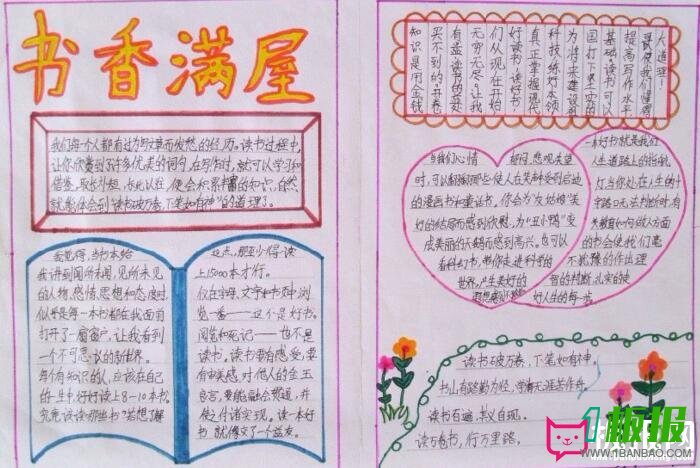 书香满屋
我们每个人都有过为写文章而发愁的经历。读书过程中,
让你欣赏到了许多优美的词句,在写作时,就可以学习和
借鉴,取长补短,长此以往,便会积累丰富的知识,自然
就能体会到“读书破万卷,下笔如有神”的道理了。
我觉得,当书本给
我讲到闻所未闻,见所未见
的人物、感情、思想和态度时,
似乎是每一本书都在我面前
打开了一扇窗户,让我看到
一个不可思议的新世界。
每个有知识的人,应该在自己
的一生中,仔仔读上8-10本书。
究竟该读哪些书?若想了解
这点,那至少得读
上15000本才行。
仅在字母、文字和书页中浏
览一番——这不是好书。
阅览和死记——也不是
读书。读书要有感受,要
有审美感,对他人的金玉
良言,要能融会贯通,并
使之付诸实现。读一本好
书,就像交了一个益友。
知识是用金钱
买不到的开卷
有益读书的益处
无穷无尽,让我
们从现在开始
好读书读好书
真正掌握
科技练好本领
为将来建设祖
国打下坚实的
基础。读书可以
提高写作水平
使我们懂得
大道理!
当我们心情郁闷、悲观失望
时,可以翻翻那些使人在笑声中受到启迪
的漫画书和童话书,你会为“灰姑娘”美
好的结局而感到欣慰,为“丑小鸭”变
成美丽的天鹅而感到高兴。也可以
看科幻书,带你走进科学的
世界,产生美好的
一本好书就是我们
人生道路上的指航
灯当你处在人生的十
字路口无法判断时,有
关教育如何做人方面
的书会使我们毫
不犹豫的作出理
智的判断,扎实的走
好人生的每一步
读书破万卷,下笔如有神。
书山有路勤为径,学海无涯苦作舟。
读书百遍,其义自现。
读万卷书,行万里路。
1板报
WWW.1BANBAO.COM